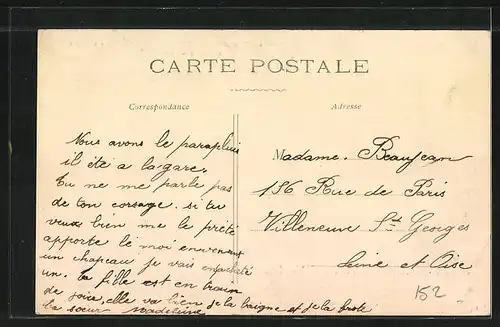 CARTE POSTALE
Correspondance
Adresse
Nous avons le parapluie
il été a la gare.
Tu ne me parle pas
de ton corsage. si tu
veux bien me le prêté
apporte le moi en venant
un chapeau je vais en acheté
un. ta fille est en train
de joie, elle va bien je la baigne et je la frote
ta soeur Madeleine
Madame. Beaujean
136 Rue de Paris
Villeneuve St Georges
Seine et Oise
152